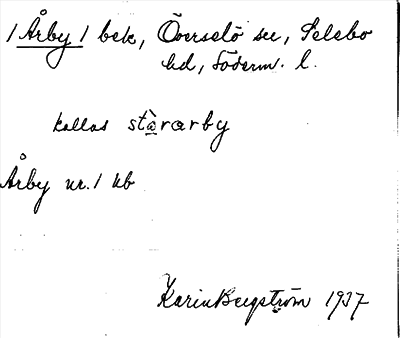 / Årby / bek, Överselö sn, Selebo
hd, Söderm. l.
kallas stɑ̀rarby
Årby nr. 1 kb
Karin Bergström 1937